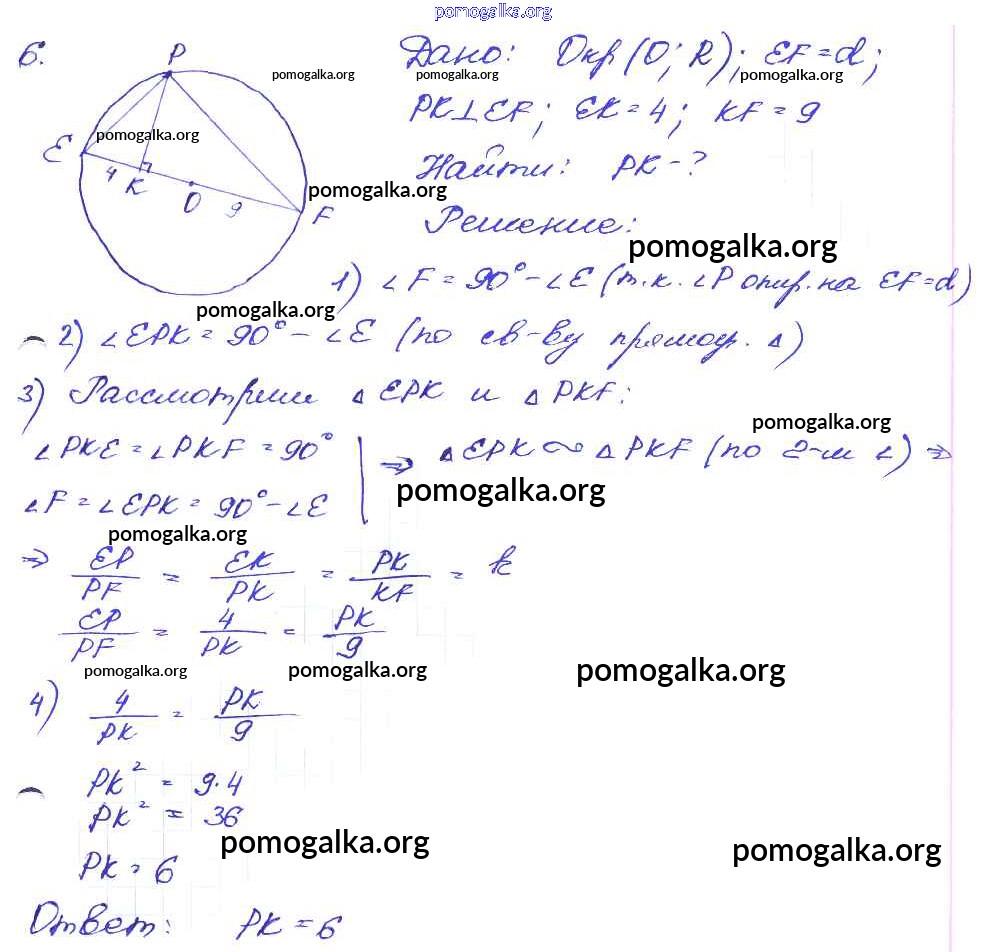 pomogalka.org
6.
P
E
4
K
O
9
F
Дано: Окр(O; R); EF=d;
pomogalka.org pomogalka.org pomogalka.org
PK⊥EF; EK=4; KF=9
pomogalka.org
Найти: PK-?
pomogalka.org
Решение:
pomogalka.org
1) ∠F=90°-∠E (т.к. ∠P опир. на EF=d)
pomogalka.org
2) ∠EPK=90°-∠E (по св-ву прямоуг. △)
3) Рассмотрим △EPK и △PKF:
pomogalka.org
∠PKE=∠PKF=90° | ⇒ △EPK ∾ △PKF (по 2-м ∠) ⇒
pomogalka.org
∠F=∠EPK=90°-∠E
pomogalka.org
⇒ EP/PF = EK/PK = PK/KF = k
EP/PF = 4/PK = PK/9
pomogalka.org pomogalka.org pomogalka.org
4) 4/PK = PK/9
PK² = 9·4
PK² = 36
pomogalka.org pomogalka.org
PK=6
Ответ: PK=6